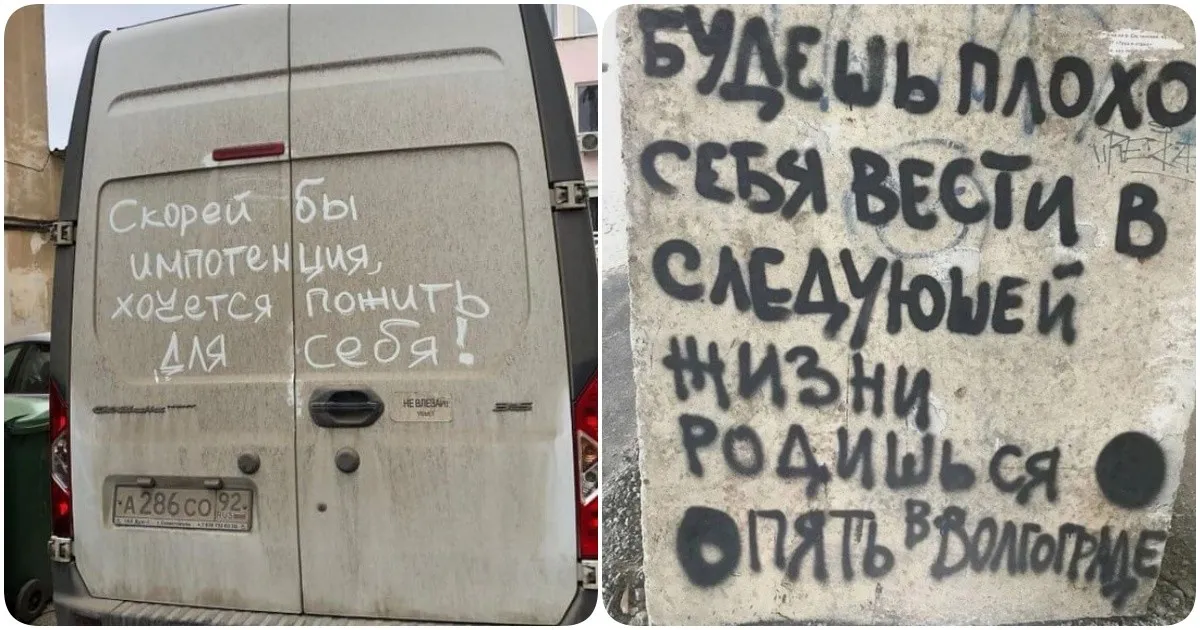 Скорей бы
импотенция,
хочется пожить
для себя!
НЕ ВЛЕЗАЙ!
А 286 СО 92
RUS
БУДЕШЬ ПЛОХО
СЕБЯ ВЕСТИ В
СЛЕДУЮШЕЙ
ЖИЗНИ
РОДИШЬСЯ
ОПЯТЬ В ВОЛГОГРАДЕ